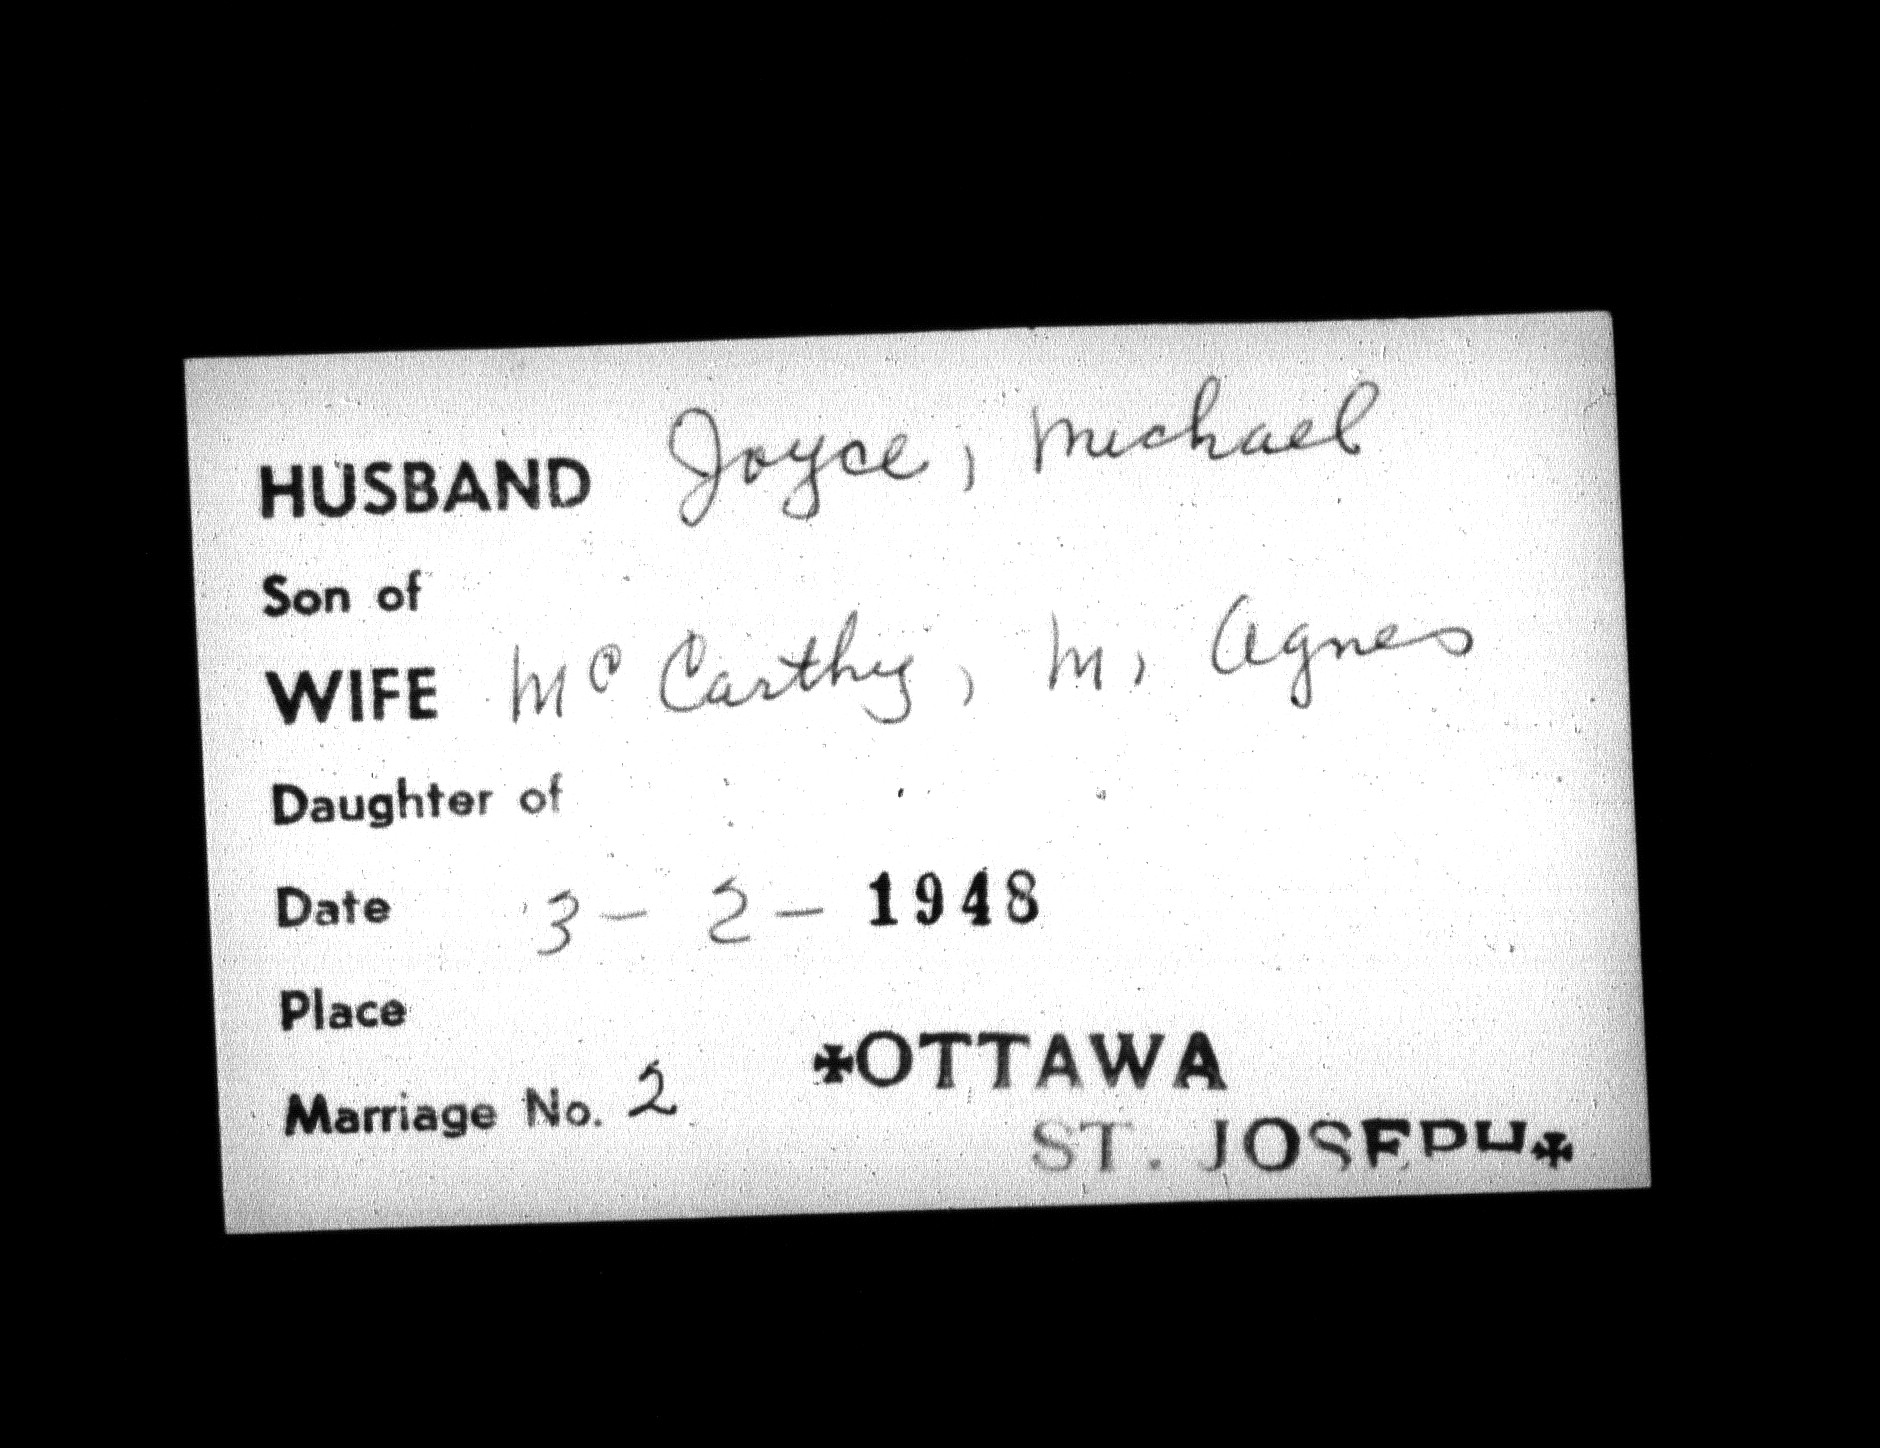 HUSBAND Joyce, Michael
Son of
WIFE Mc Carthy, M, Agnes
Daughter of
Date 3 - 2 - 1948
Place
✠OTTAWA
Marriage No. 2
ST. JOSEPH✠